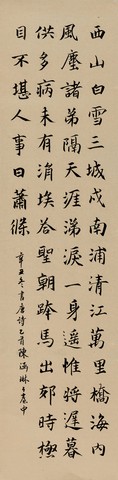 西山白雪三城戍南浦清江萬里橋海內
風塵諸弟隔天涯涕淚一身遙惟將遲暮
供多病未有涓埃答聖朝跨馬出郊時極
目不堪人事日蕭條
辛丑冬書唐詩乙首陳